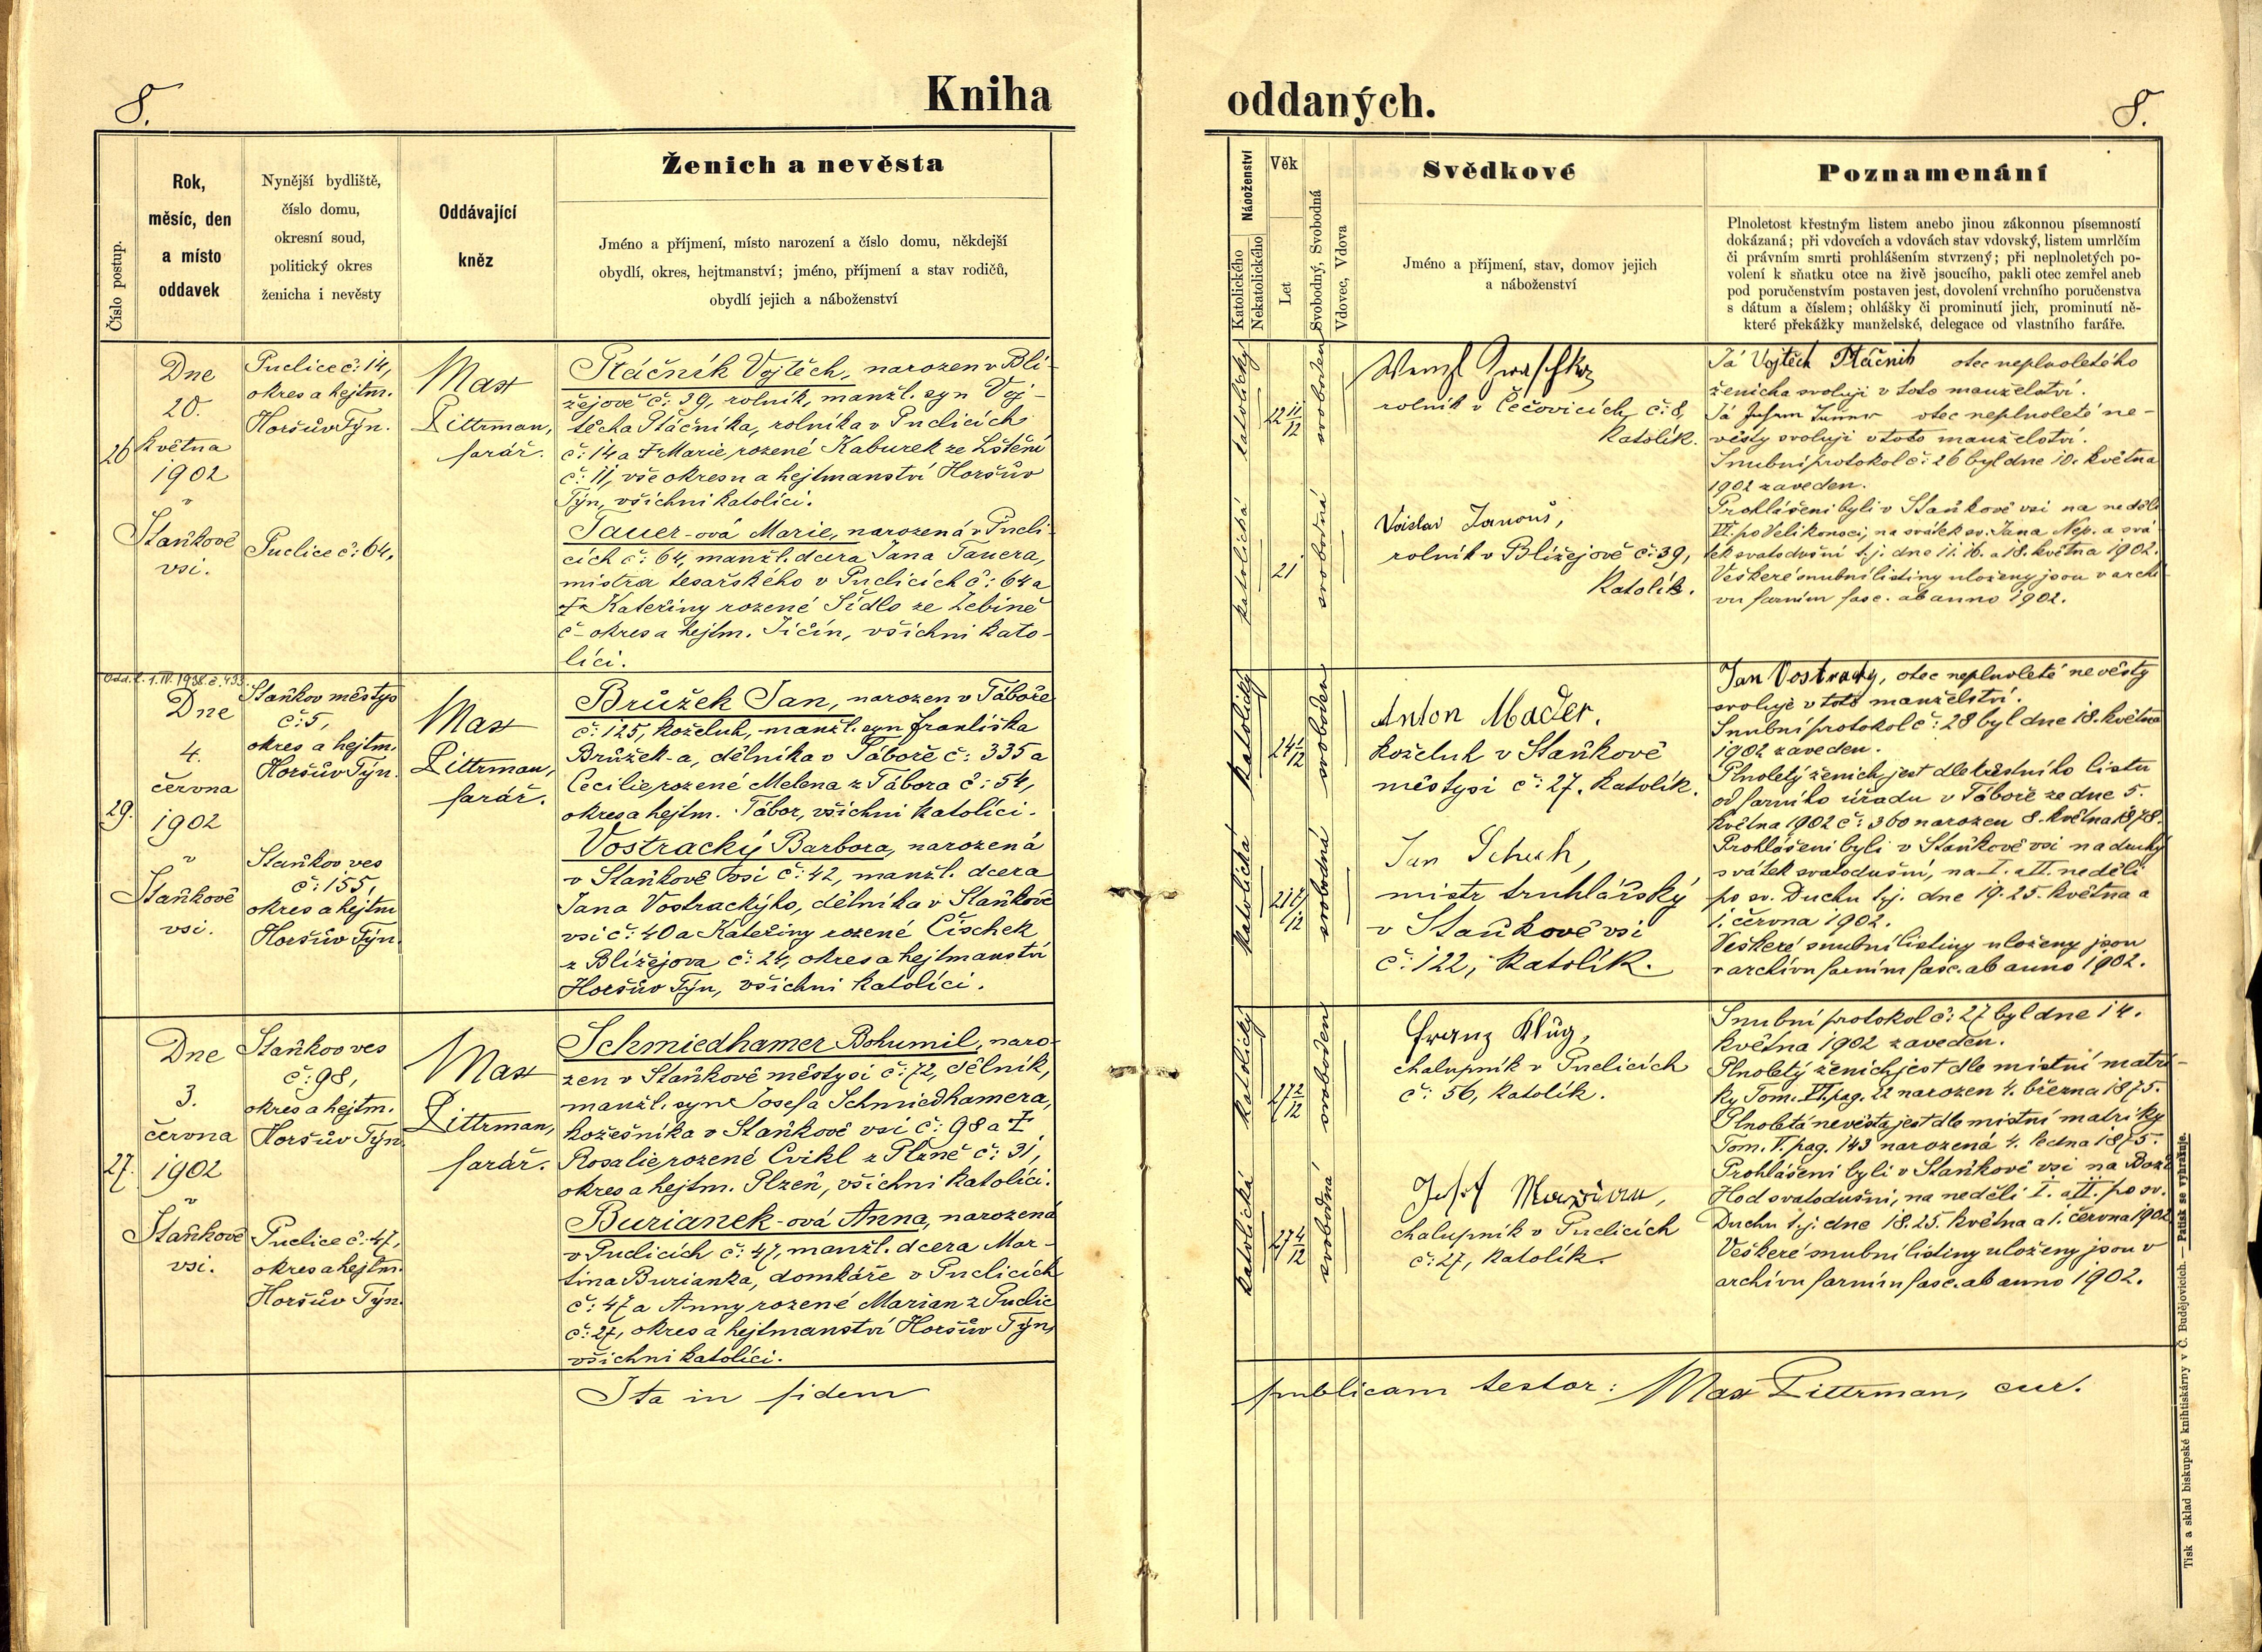 8.
Kniha
oddaných.
8.
Číslo postup.
Rok,
měsíc, den
a místo
oddavek
Nynější bydliště,
číslo domu,
okresní soud,
politický okres
ženicha i nevěsty
Oddávající
kněz
Ženich a nevěsta
Jméno a příjmení, místo narození a číslo domu, někdejší
obydlí, okres, hejtmanství; jméno, příjmení a stav rodičů,
obydlí jejich a náboženství
Náboženství
Katolického
Nekatolického
Věk
Let
Svobodný, Svobodná
Vdovec, Vdova
Svědkové
Jméno a příjmení, stav, domov jejich
a náboženství
Poznamenání
Plnoletost křestným listem anebo jinou zákonnou písemností
dokázaná; při vdovcích a vdovách stav vdovský, listem umrlčím
či právním smrti prohlášením stvrzený; při neplnoletých po-
volení k sňatku otce na živě jsoucího, pakli otec zemřel aneb
pod poručenstvím postaven jest, dovolení vrchního poručenstva
s dátum a číslem; ohlášky či prominutí jich, prominutí ně-
které překážky manželské, delegace od vlastního faráře.
26
Dne
20.
května
1902
v
Staňkově
vsi.
Puclice č: 14,
okres a hejtm.
Horšův Týn.
Puclice č: 64,
Max
Pittrman,
farář.
Ptáčník Vojtěch, narozen v Bli-
žejově č: 39, rolník, manžl. syn Voj-
těcha Ptáčníka, rolníka v Puclicích
č: 14 a † Marie, rozené Kaburek ze Lštění
č: 11, vše okresu a hejtmanství Horšův
Týn, všichni katolíci.
Tauer-ová Marie, narozená v Pucli-
cích č: 64, manžl. dcera Jana Tauera,
mistra tesařského v Puclicích č: 64 a
† Kateřiny rozené Sídlo ze Žebině
č- okres a hejtm. Jičín, všichni kato-
líci.
katolický
22 11/12
svoboden
katolická
21
svobodná
rolník v Čečovicích č: 8,
katolík.
Janouš,
rolník v Blížejově č: 39,
katolík.
Já Vojtěch Ptáčník otec neplnoletého
ženicha svoluji v toto manželství.
Já otec neplnoleté ne-
věsty svoluji v toto manželství.
Snubní protokol č: 26 byl dne 10. května
1902 zaveden.
Prohlášeni byli v Staňkově vsi na neděli
VI. po Velikonoci, na svátek sv. Jana Nep. a svá-
tek svatodušní t. j. dne 11. 16. a 18. května 1902.
Veškeré snubní listiny uloženy jsou v archi-
vu farním fasc. ab anno 1902.
29.
Dne
4.
června
1902
v
Staňkově
vsi.
Staňkov městys
č: 5,
okres a hejtm.
Horšův Týn.
Staňkov ves
č: 155,
okres a hejtm
Horšův Týn.
Max
Pittrman,
farář.
Brůžek Jan, narozen v Táboře
č: 125, koželuh, manžl. syn Františka
Brůžek-a, dělníka v Táboře č: 335 a
Cecilie, rozené Melena z Tábora č: 54,
okres a hejtm. Tábor, všichni katolíci.
Vostracký Barbora, narozená
v Staňkově vsi č: 42, manžl. dcera
Jana Vostrackýho, dělníka v Staňkově
vsi č: 40 a Kateřiny rozené Čischek
z Blížejova č: 24, okres a hejtmanství
Horšův Týn, všichni katolíci.
katolický
svoboden
katolická
svobodná
Anton Mader.
koželuh v Staňkově
městysi č: 27. katolík.
Jan Schuh,
mistr truhlářský
v Staňkově vsi
č: 122, katolík.
Jan Vostracky, otec neplnoleté nevěsty
svoluje v toto manželství.
Snubní protokol č: 28 byl dne 18. května
1902 zaveden.
Plnoletý ženich jest dle křestního listu
od farního úřadu v Táboře ze dne 5.
května 1902 č: 360 narozen 8. května 1878.
Prohlášeni byli v Staňkově vsi na druhý
svátek svatodušní, na I. a II. neděli
po sv. Duchu t. j. dne 19. 25. května a
1. června 1902.
Veškeré snubní listiny uloženy jsou
v archivu farním fasc. ab anno 1902.
27.
Dne
3.
června
1902
v
Staňkově
vsi.
Staňkov ves
č: 98,
okres a hejtm.
Horšův Týn.
Puclice č: 47,
okres a hejtm.
Horšův Týn.
Max
Pittrman,
farář.
Schmiedhamer Bohumil, naro-
zen v Staňkově městysi č: 72, dělník,
manžl. syn Josefa Schmiedhamera,
kožešníka v Staňkově vsi č: 98 a †
Rosalie, rozené Cvikl z Plzně č: 31,
okres a hejtm. Plzeň, všichni katolíci.
Burianek-ová Anna, narozená
v Puclicích č: 47, manžl. dcera Mar-
tina Burianka, domkáře v Puclicích
č: 47 a Anny rozené Marian z Puclic
č: 27, okres a hejtmanství Horšův Týn,
všichni katolíci.
katolický
27 2/12
svoboden
katolická
27 4/12
svobodná
Franz Klug,
chalupník v Puclicích
č: 56, katolík.
Josef Marian,
chalupník v Puclicích
č: 27, katolík.
Snubní protokol č: 27 byl dne 14.
května 1902 zaveden.
Plnoletý ženich jest dle místní matri-
ky Tom. VI. pag. 22 narozen 4. března 1875.
Plnoletá nevěsta jest dle místní matriky
Tom. V. pag. 143 narozená 4. ledna 1875.
Prohlášeni byli v Staňkově vsi na Boží
Hod svatodušní, na neděli I. a II. po sv.
Duchu t. j. dne 18. 25. května a 1. června 1902
Veškeré snubní listiny uloženy jsou v
archivu farním fasc. ab anno 1902.
Ita in fidem
publicam testor: Max Pittrman, cur.
Tisk a sklad biskupské knihtiskárny v Č. Budějovicích. — Patisk se vyhražuje.